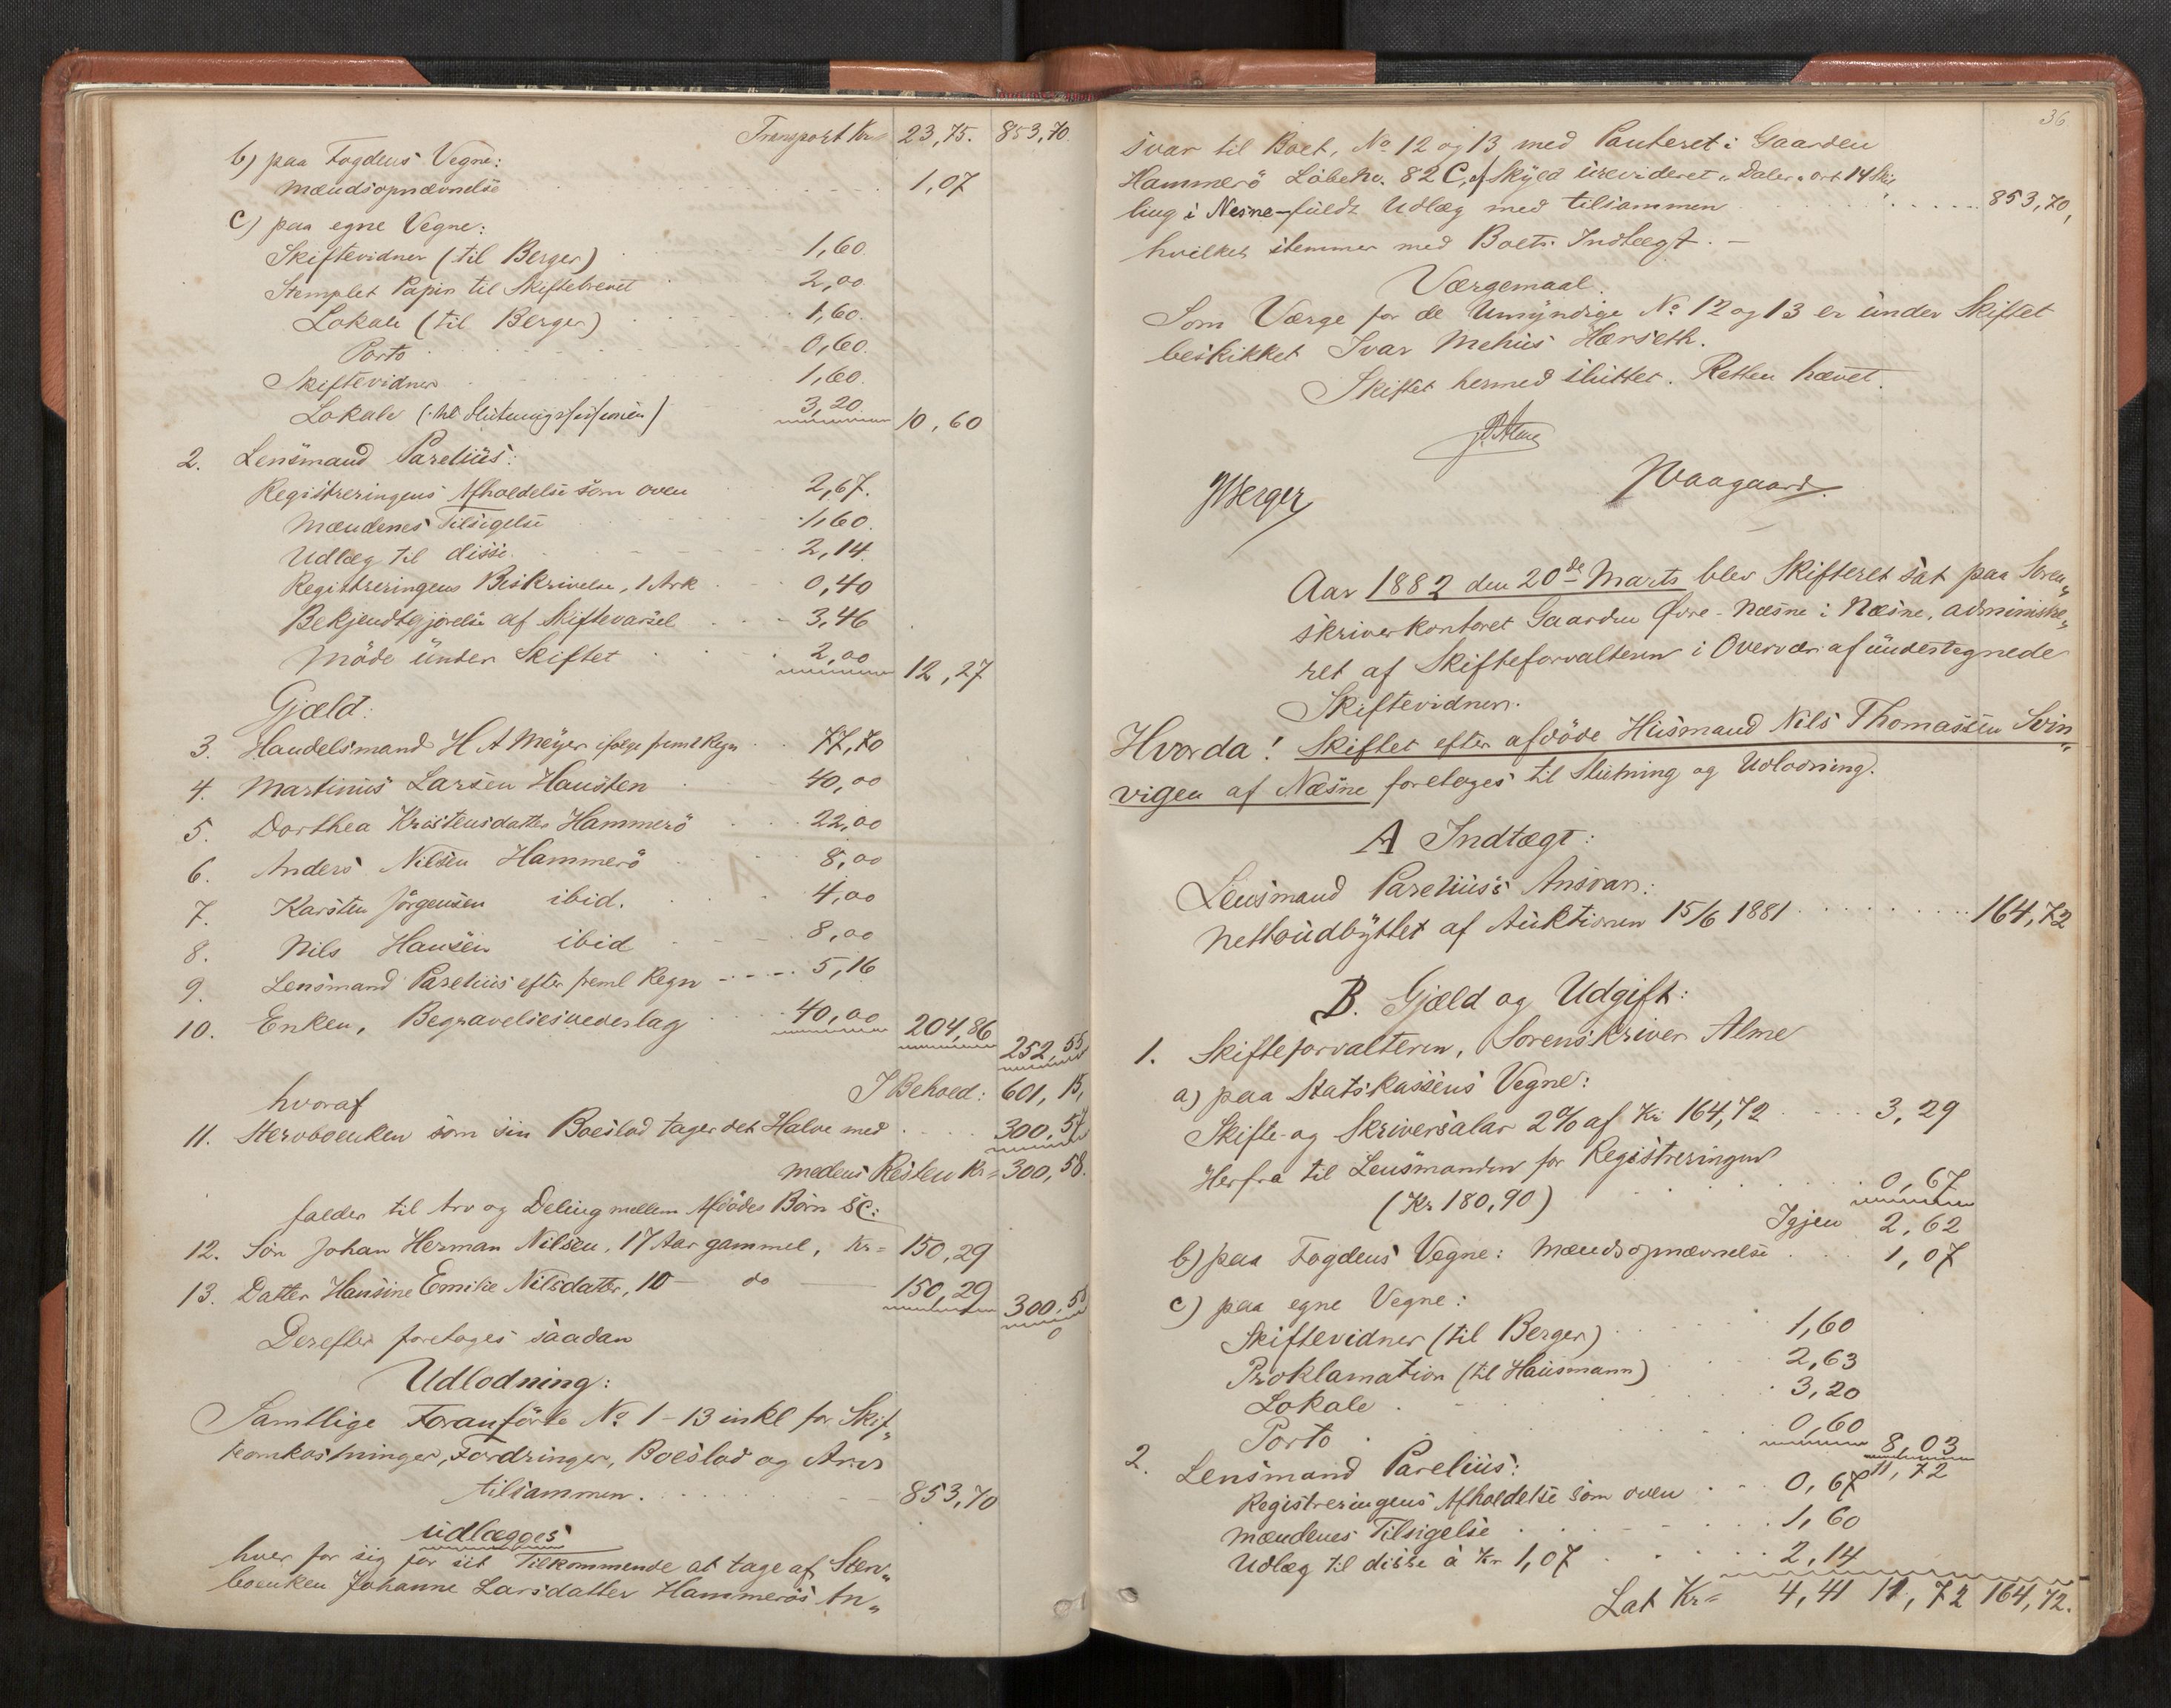 Transport Kr= 23,75. 853,70.
b) paa Fogdens Vegne:
Mændsopnævnelse 1,07
c) paa egne Vegne:
Skiftevidner (til Berger) 1,60
Stemplet Papir til Skiftebrevet 2,00
Lokale (til Berger) 1,60.
Porto 0,60.
Skiftevidner 1,60.
Lokale (til Slutningssessionen) 3,20 10,60
2. Lensmand Parelius:
Registreringens Afholdelse som oven 2,67.
Mændenes Tilsigelse 1,60.
Udlæg til disse 2,14.
Registreringens Beskrivelse, 1 Ark 0,40
Bekjendtgjørelse af Skiftevarsel 3,46
Möde under Skiftet 2,00 12,27
Gjæld:
3. Handelsmand H A Meyer ifølge freml Regn 77,70
4. Martinus Larsen Hausten 40,00
5. Dorthea Kristensdatter Hammerö 22,00
6. Anders Nilsen Hammerö 8,00
7. Karsten Jörgensen ibid. 4,00
8. Nils Hansen ibid 8,00
9. Lensmand Parelius efter freml Regn 5,16
10. Enken, Begravelsesvederlag 40,00 204,86
252,55
I Behold: 601,15,
hvoraf
11. Stervboenken som sin Boeslod tager det Halve med 300,57
medens Resten Kr= 300,58.
falder til Arv og Deling mellem Afdödes Börn sc:
12. Sön Johan Herman Nilsen, 17 Aar gammel, Kr= 150,29
13. Datter Hansine Emilie Nilsdatter, 10 — do — 150,29
300,58
0
Derefter foretages saadan
Udlodning:
Samtlige Foranförte No 1-13 inkl for Skif„
teomkostninger, Fordringer, Boeslod og Arv
tilsammen. 853,70
udlægges
hver for sig for sit Tilkommende at tage af Sterv„
boenken Johanne Larsdatter Hammerös An„
36
svar til Boet, No 12 og 13 med Panteret i Gaarden
Hammerö Löbeno. 82 C, af Skyld urevideret „ Daler „ ort 14 Skil
ling i Nesne fuldt Udlæg med tilsammen 853,70,
hvilket stemmer med Boets Indtægt. —
Værgemaal.
Som Værge for de Umyndige No 12 og 13 er under Skiftet
beskikket Ivar Mehus Hærseth.
Skiftet hermed sluttet. Retten hævet.
Alme
Berger
Waagaard.
Aar 1882 den 20de Marts blev Skifteret sat paa Soren„
skriverkontoret Gaarden Övre-Næsne i Næsne, administre„
ret af Skifteforvalteren i Overvær af undertegnede
Skiftevidner.
Hvorda! Skiftet efter afdöde Husmand Nils Thomassen Svin„
vigen af Næsne foretages til Slutning og Udlodning.
A Indtægt:
Lensmand Parelius's Ansvar:
Nettoudbyttet af Auktionen 15/6 1881 164,72
B. Gjæld og Udgift:
1. Skifteforvalteren, Sorenskriver Alme
a) paa Statskassens Vegne:
Skifte- og Skriversalær 2% af Kr 164,72 3,29
Herfra til Lensmanden for Registreringen
(Kr 180,90) 0,67
Igjen 2,62
b) paa Fogdens Vegne: Mændsopnævnelse 1,07
c) paa egne Vegne:
Skiftevidner (til Berger) 1,60
Proklamation (til Hausmann) 2,63
Lokale 3,20
Porto 0,60 8,03
11,72
2. Lensmand Parelius:
Registreringens Afholdelse som oven 0,67
Mændenes Tilsigelse 1,60
Udlæg til disse à Kr 1,07 2,14
Lat Kr= 4,41 11,72 164,72.